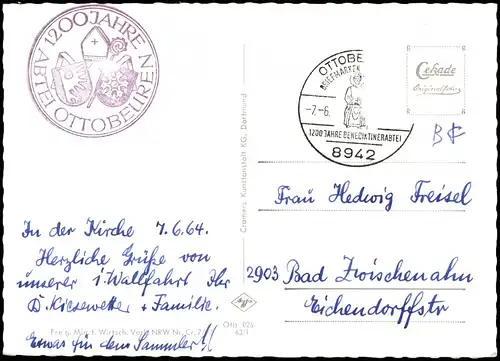 1200 JAHRE
ABTEI OTTOBEUREN
OTTOBE
BRIEFMARKEN
-7.-6.
1200 JAHRE BENEDIKTINERABTEI
8942
Cekade
Originalfoto
BK
Cramers Kunstanstalt KG., Dortmund
Frau Hedwig Freisel
2903 Bad Zwischenahn
Eichendorffstr
In der Kirche 7.6.64.
Herzliche Grüße von
unserer Wallfahrt Ihr
D. Kiesewetter + Familie.
Etwas für den Sammler!!
Frg. d. Min. f. Wirtsch. Verk. NRW Nr. Cr.
Otto 026
62/1